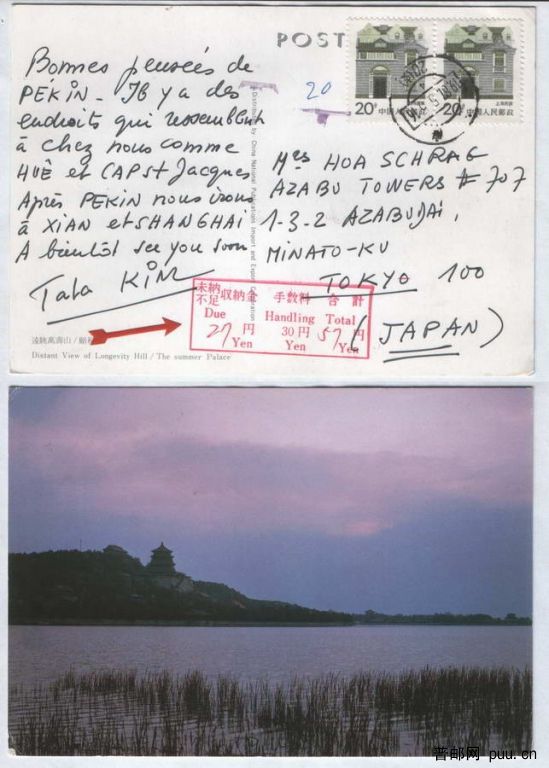 Bonnes pensées de
PÉKIN - Il y a des
endroits qui ressemblent
à chez nous comme
HUÊ et CAP St Jacques
Après PEKIN nous irons
à XIAN et SHANGHAI
A bientôt see you soon
Tata KIM
POST
20
20分
中国人民邮政
20分
中国人民邮政
Distributed by China National Publications Import and Export Corporation
Mrs HOA SCHRAG
AZABU TOWERS # 707
1-3-2 AZABUDAI,
MINATO-KU
TOKYO 100
(JAPAN)
未納 不足 収納金 手数料 合計
Due Handling Total
27円 30円 57円
Yen Yen Yen
遠眺萬壽山/頤和
Distant View of Longevity Hill / The summer Palace
普邮网 puu.cn